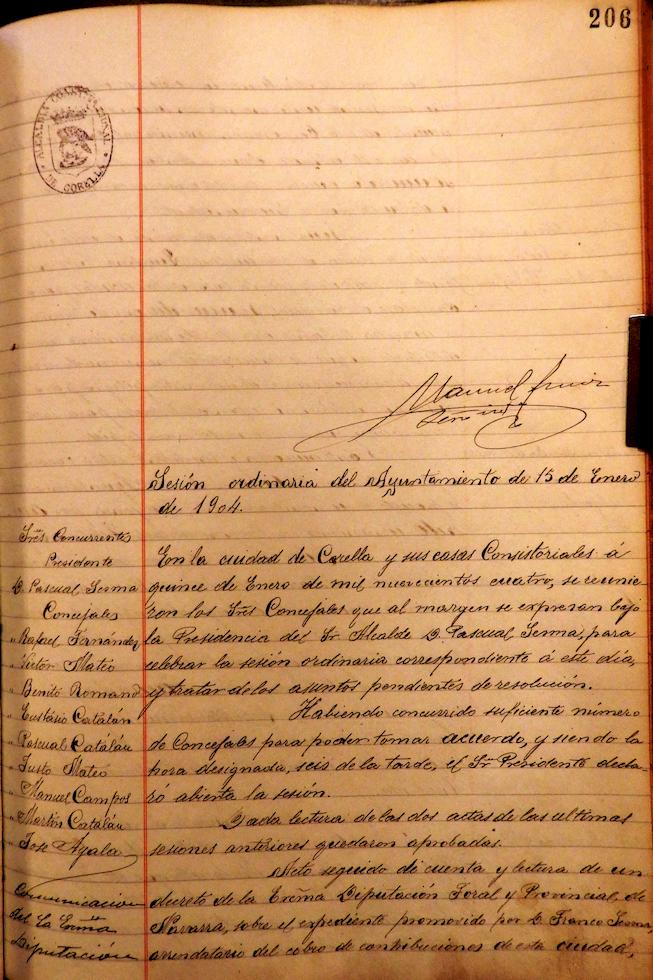 206
ALCALDIA CONSTITUCIONAL
DE CORELLA
Manuel
Sesión ordinaria del Ayuntamiento de 15 de Enero
de 1904.
Sres Concurrentes
Presidente
D. Pascual Sesma
Concejales
" Rafael Fernández
" Victor Mateo
" Benito Romano
" Eustasio Catalán
" Pascual Catalán
" Justo Mateo
" Manuel Campos
" Martin Catalán
" Jose Ayala
Comunicación
de la Exma
Diputación
En la ciudad de Corella y sus casas Consistoriales á
quince de Enero de mil nuevecientos cuatro, se reunie-
ron los Sres Concejales que al margen se expresan bajo
la Presidencia del Sr Alcalde D. Pascual Sesma, para
celebrar la sesión ordinaria correspondiente á este día,
y tratar de los asuntos pendientes de resolución.
Habiendo concurrido suficiente número
de Concejales para poder tomar acuerdo, y siendo la
hora designada, seis de la tarde, el Sr Presidente decla-
ró abierta la sesión.
Dada lectura de las dos actas de las ultimas
sesiones anteriores quedaron aprobadas.
Acto seguido dí cuenta y lectura de un
decreto de la Excma Diputación Foral y Provincial de
Navarra, sobre el expediente promovido por D. Franco Sesma,
arrendatario del cobro de contribuciones de esta ciudad,